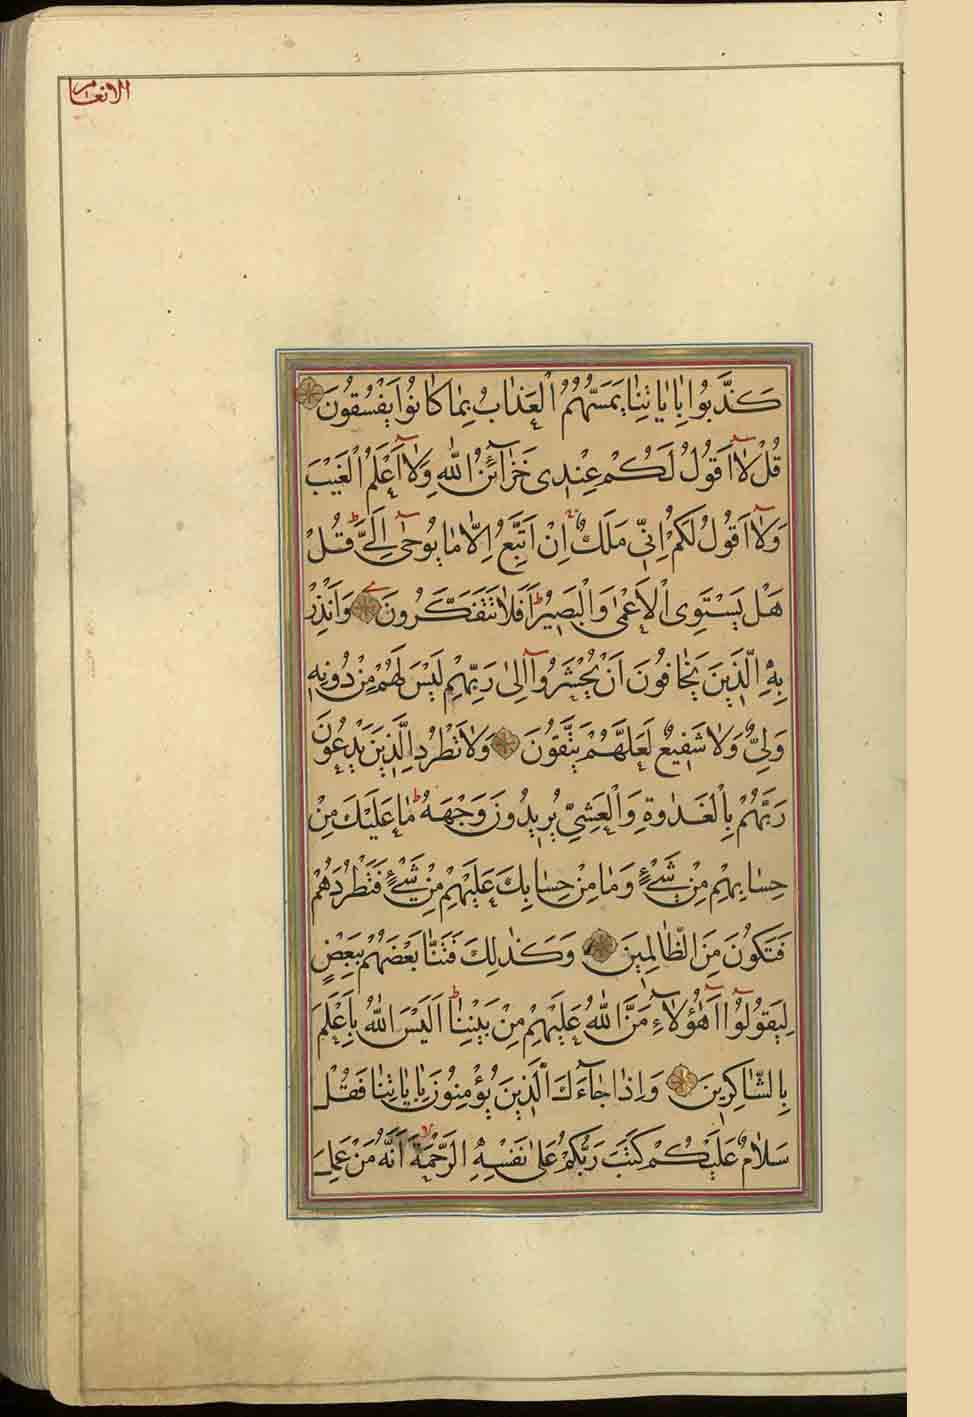 الانعام
كَذَّبُوا بِاٰيَاتِنَا يَمَسُّهُمُ الْعَذَابُ بِمَا كَانُوا يَفْسُقُونَ
قُلْ لَا اَقُولُ لَكُمْ عِنْدِى خَزَآئِنُ اللّٰهِ وَلَا اَعْلَمُ الْغَيْبَ
وَلَا اَقُولُ لَكُمْ اِنِّى مَلَكٌ اِنْ اَتَّبِعُ اِلَّا مَا يُوحٰى اِلَىَّ قُلْ
هَلْ يَسْتَوِى الْاَعْمٰى وَالْبَصِيرُ اَفَلَا تَتَفَكَّرُونَ وَاَنْذِرْ
بِهِ الَّذِينَ يَخَافُونَ اَنْ يُحْشَرُوا اِلٰى رَبِّهِمْ لَيْسَ لَهُمْ مِنْ دُونِهِ
وَلِىٌّ وَلَا شَفِيعٌ لَعَلَّهُمْ يَتَّقُونَ وَلَا تَطْرُدِ الَّذِينَ يَدْعُونَ
رَبَّهُمْ بِالْغَدٰوةِ وَالْعَشِىِّ يُرِيدُونَ وَجْهَهُ مَا عَلَيْكَ مِنْ
حِسَابِهِمْ مِنْ شَىْءٍ وَمَا مِنْ حِسَابِكَ عَلَيْهِمْ مِنْ شَىْءٍ فَتَطْرُدَهُمْ
فَتَكُونَ مِنَ الظَّالِمِينَ وَكَذٰلِكَ فَتَنَّا بَعْضَهُمْ بِبَعْضٍ
لِيَقُولُوا اَهٰؤُلَآءِ مَنَّ اللّٰهُ عَلَيْهِمْ مِنْ بَيْنِنَا اَلَيْسَ اللّٰهُ بِاَعْلَمَ
بِالشَّاكِرِينَ وَاِذَا جَآءَكَ الَّذِينَ يُؤْمِنُونَ بِاٰيَاتِنَا فَقُلْ
سَلَامٌ عَلَيْكُمْ كَتَبَ رَبُّكُمْ عَلٰى نَفْسِهِ الرَّحْمَةَ اَنَّهُ مَنْ عَمِلَ